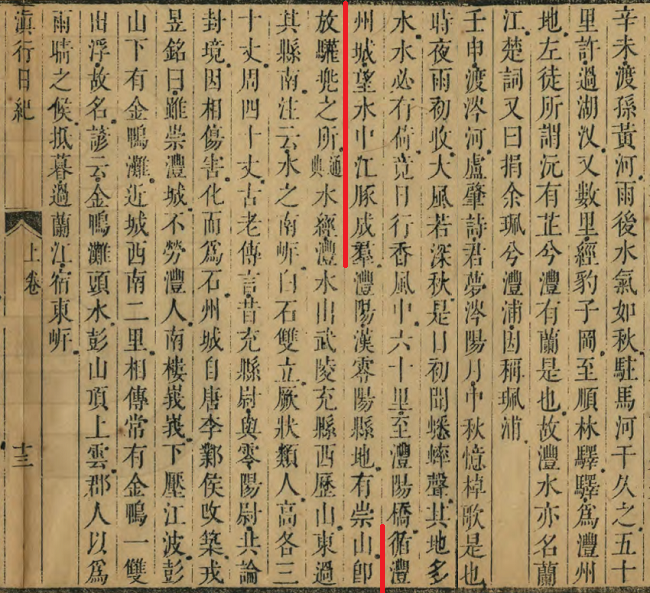 辛未渡孫黃河雨後水氣如秋駐馬河干久之五十
里許過湖汊又數里經豹子岡至順林驛驛爲澧州
地左徒所謂沅有芷兮澧有蘭是也故澧水亦名蘭
江楚詞又曰捐余珮兮澧浦因稱珮浦
壬申渡涔河盧肇詩君夢涔陽月中秋憶棹歌是也
時夜雨初收大風若深秋是日初聞蟋蟀聲其地多
水水必有荷竟日行香風中六十里至澧陽橋循澧
州城望水中江豚成羣澧陽漢零陽縣地有崇山卽
放驩兠之所通典水經澧水出武陵充縣西歷山東過
其縣南注云水之南岍白石雙立厥狀類人高各三
十丈周四十丈古老傳言昔充縣尉與零陽尉共論
封境因相傷害化而爲石州城自唐李鄴侯改築戎
昱銘曰雖崇澧城不勞澧人南樓峩峩下壓江波彭
山下有金鴨灘近城西南二里相傳常有金鴨一雙
出浮故名諺云金鴨灘頭水彭山頂上雲郡人以爲
雨晴之候抵暮過蘭江宿東岍
滇行日紀
上卷
十三